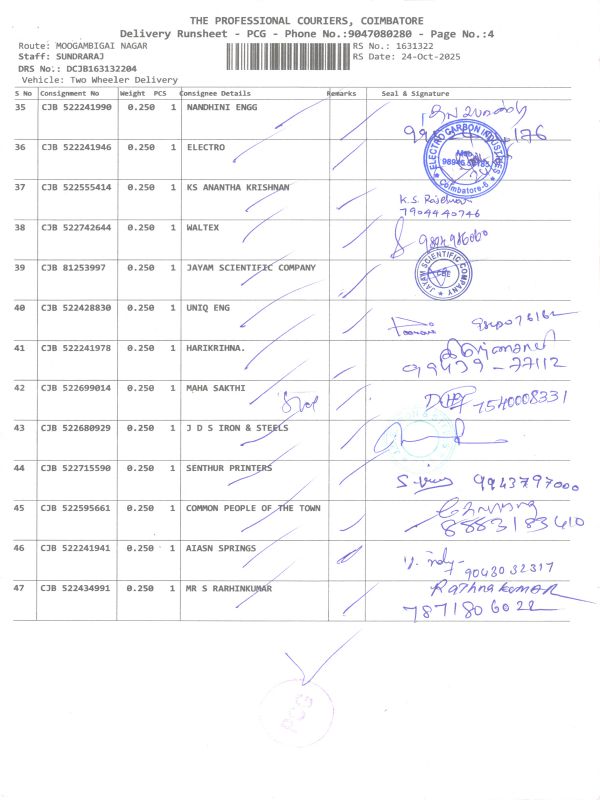 THE PROFESSIONAL COURIERS, COIMBATORE
Delivery Runsheet - PCG - Phone No.:9047080280 - Page No.:4
Route: MOOGAMBIGAI NAGAR RS No.: 1631322
Staff: SUNDRARAJ RS Date: 24-Oct-2025
DRS No.: DCJB163132204
Vehicle: Two Wheeler Delivery
S No Consignment No Weight PCS Consignee Details Remarks Seal & Signature
35 CJB 522241990 0.250 1 NANDHINI ENGG
36 CJB 522241946 0.250 1 ELECTRO ELECTRO CARBON INDUSTRIES Coimbatore-6
37 CJB 522555414 0.250 1 KS ANANTHA KRISHNAN K.S.
7904440746
38 CJB 522742644 0.250 1 WALTEX
39 CJB 81253997 0.250 1 JAYAM SCIENTIFIC COMPANY JAYAM SCIENTIFIC COMPANY CBE
40 CJB 522428830 0.250 1 UNIQ ENG
41 CJB 522241978 0.250 1 HARIKRIHNA.
99439-77112
42 CJB 522699014 0.250 1 MAHA SAKTHI 7540008331
43 CJB 522680929 0.250 1 J D S IRON & STEELS
44 CJB 522715590 0.250 1 SENTHUR PRINTERS 9943797000
45 CJB 522595661 0.250 1 COMMON PEOPLE OF THE TOWN
8883183410
46 CJB 522241941 0.250 1 AIASN SPRINGS
9043032317
47 CJB 522434991 0.250 1 MR S RARHINKUMAR Rathnakumar
7871806022
PCG